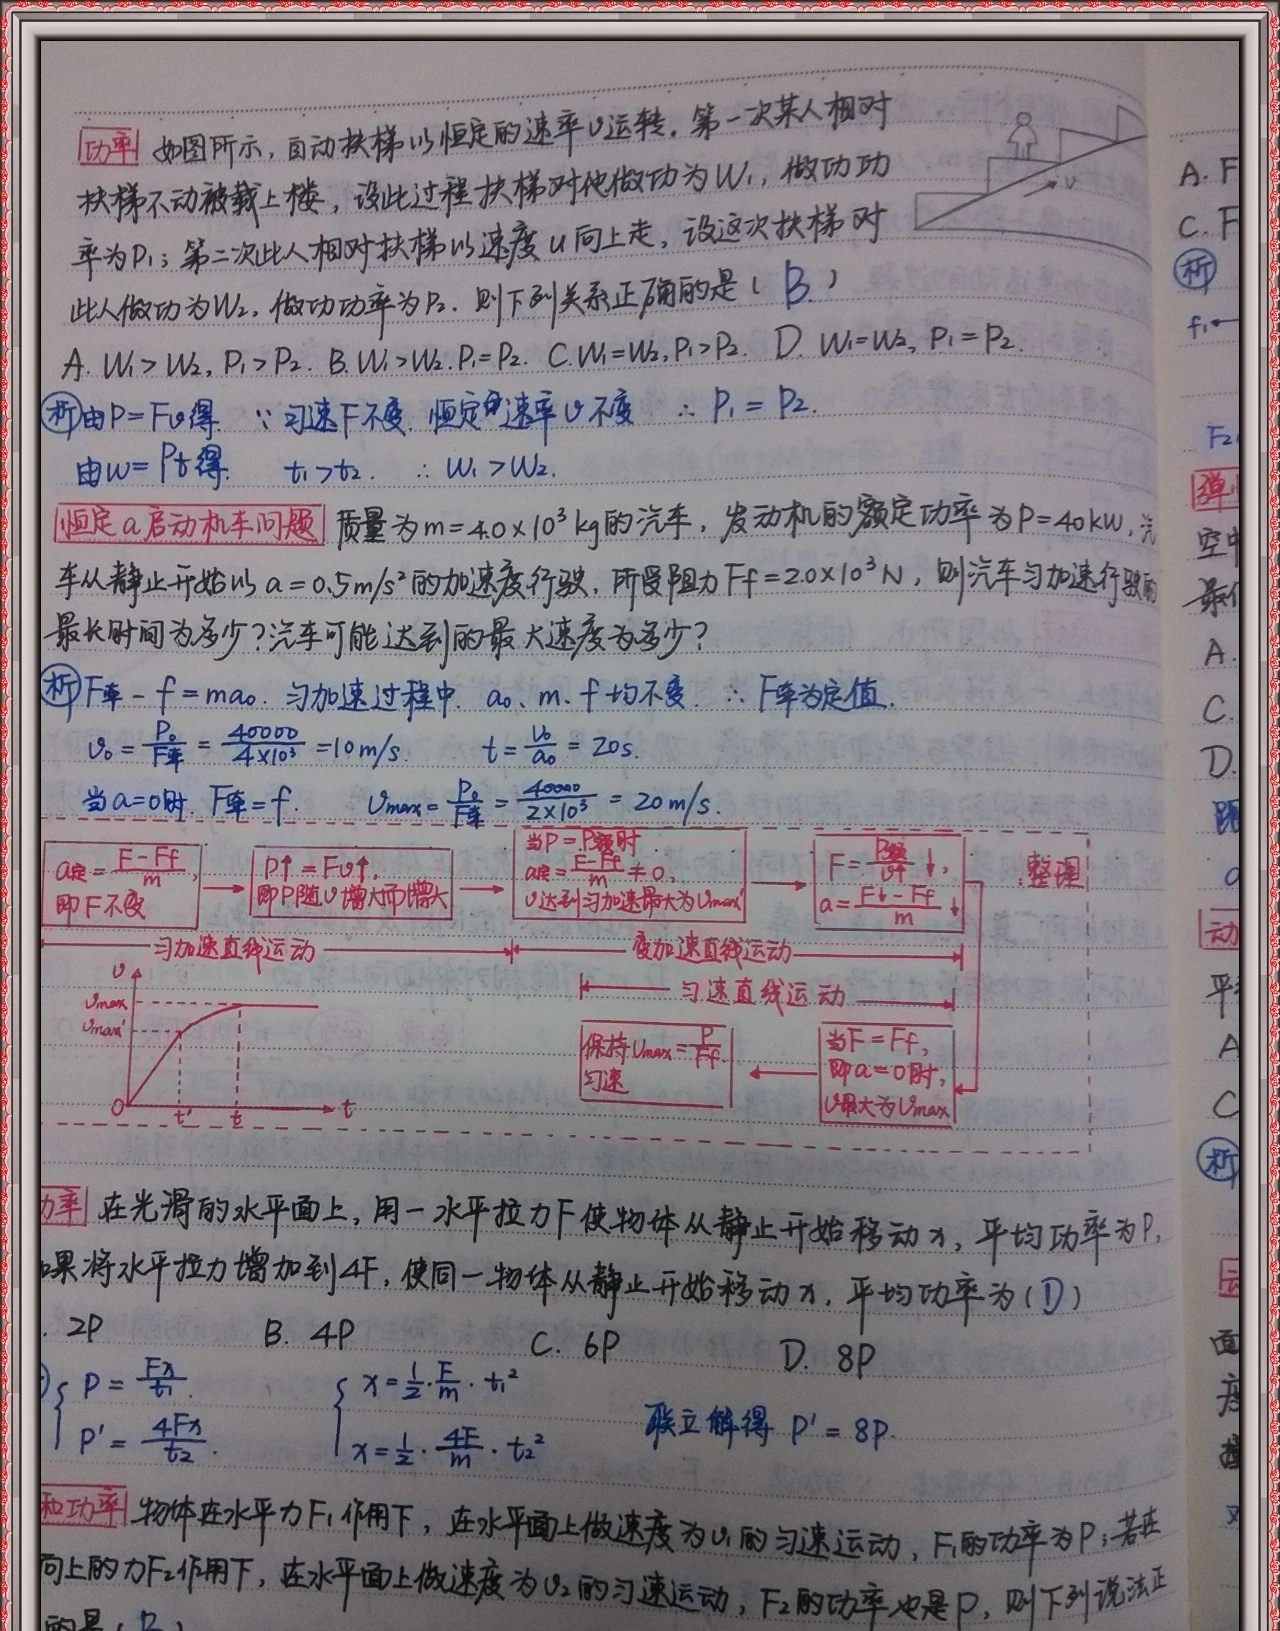 功率 如图所示,自动扶梯以恒定的速率υ运转。第一次某人相对
扶梯不动被载上楼,设此过程扶梯对他做功为W₁,做功功
率为P₁;第二次此人相对扶梯以速度u向上走,设这次扶梯对
此人做功为W₂,做功功率为P₂。则下列关系正确的是(B)
υ
A. W₁>W₂, P₁>P₂. B. W₁>W₂. P₁=P₂. C. W₁=W₂, P₁>P₂. D. W₁=W₂, P₁=P₂.
析 由P=Fυ得 ∵匀速F不变. 恒定的速率υ不变 ∴P₁=P₂.
由W=Pt得. t₁>t₂. ∴W₁>W₂.
恒定a启动机车问题 质量为m=4.0×10³kg的汽车,发动机的额定功率为P=40kW,汽
车从静止开始以a=0.5m/s²的加速度行驶,所受阻力Ff=2.0×10³N,则汽车匀加速行驶的
最长时间为多少?汽车可能达到的最大速度为多少?
析 F牵-f=ma₀. 匀加速过程中. a₀、m、f均不变. ∴F牵为定值.
υ₀=P₀/F牵=40000/4×10³=10m/s. t=υ₀/a₀=20s.
当a=0时. F牵=f. υmax=P₀/F牵=40000/2×10³=20m/s.
a定=F-Ff/m,
即F不变
P↑=Fυ↑,
即P随υ增大而增大
当P=P额时
a定=F-Ff/m≠0,
υ达到匀加速最大为υmax'
F=P额/υ↑↓,
a=F↓-Ff/m↓
整理
匀加速直线运动
变加速直线运动
匀速直线运动
υ
υmax
υmax'
O t' t t
保持υmax=P/Ff
匀速
当F=Ff,
即a=0时,
υ最大为υmax
功率 在光滑的水平面上,用一水平拉力F使物体从静止开始移动x,平均功率为P,
果将水平拉力增加到4F,使同一物体从静止开始移动x,平均功率为(D)
. 2P B. 4P C. 6P D. 8P
P=Fx/t₁. x=½·F/m·t₁²
P'=4Fx/t₂. x=½·4F/m·t₂² 联立解得 P'=8P.
和功率 物体在水平力F₁作用下,在水平面上做速度为υ₁的匀速运动,F₁的功率为P;若在
向上的力F₂作用下,在水平面上做速度为υ₂的匀速运动,F₂的功率也是P,则下列说法正
的是(B)
A. F
C. F
析
f₁
F₂
弹
空中
最
A.
C.
D.
a
动
平
A
C
析
面